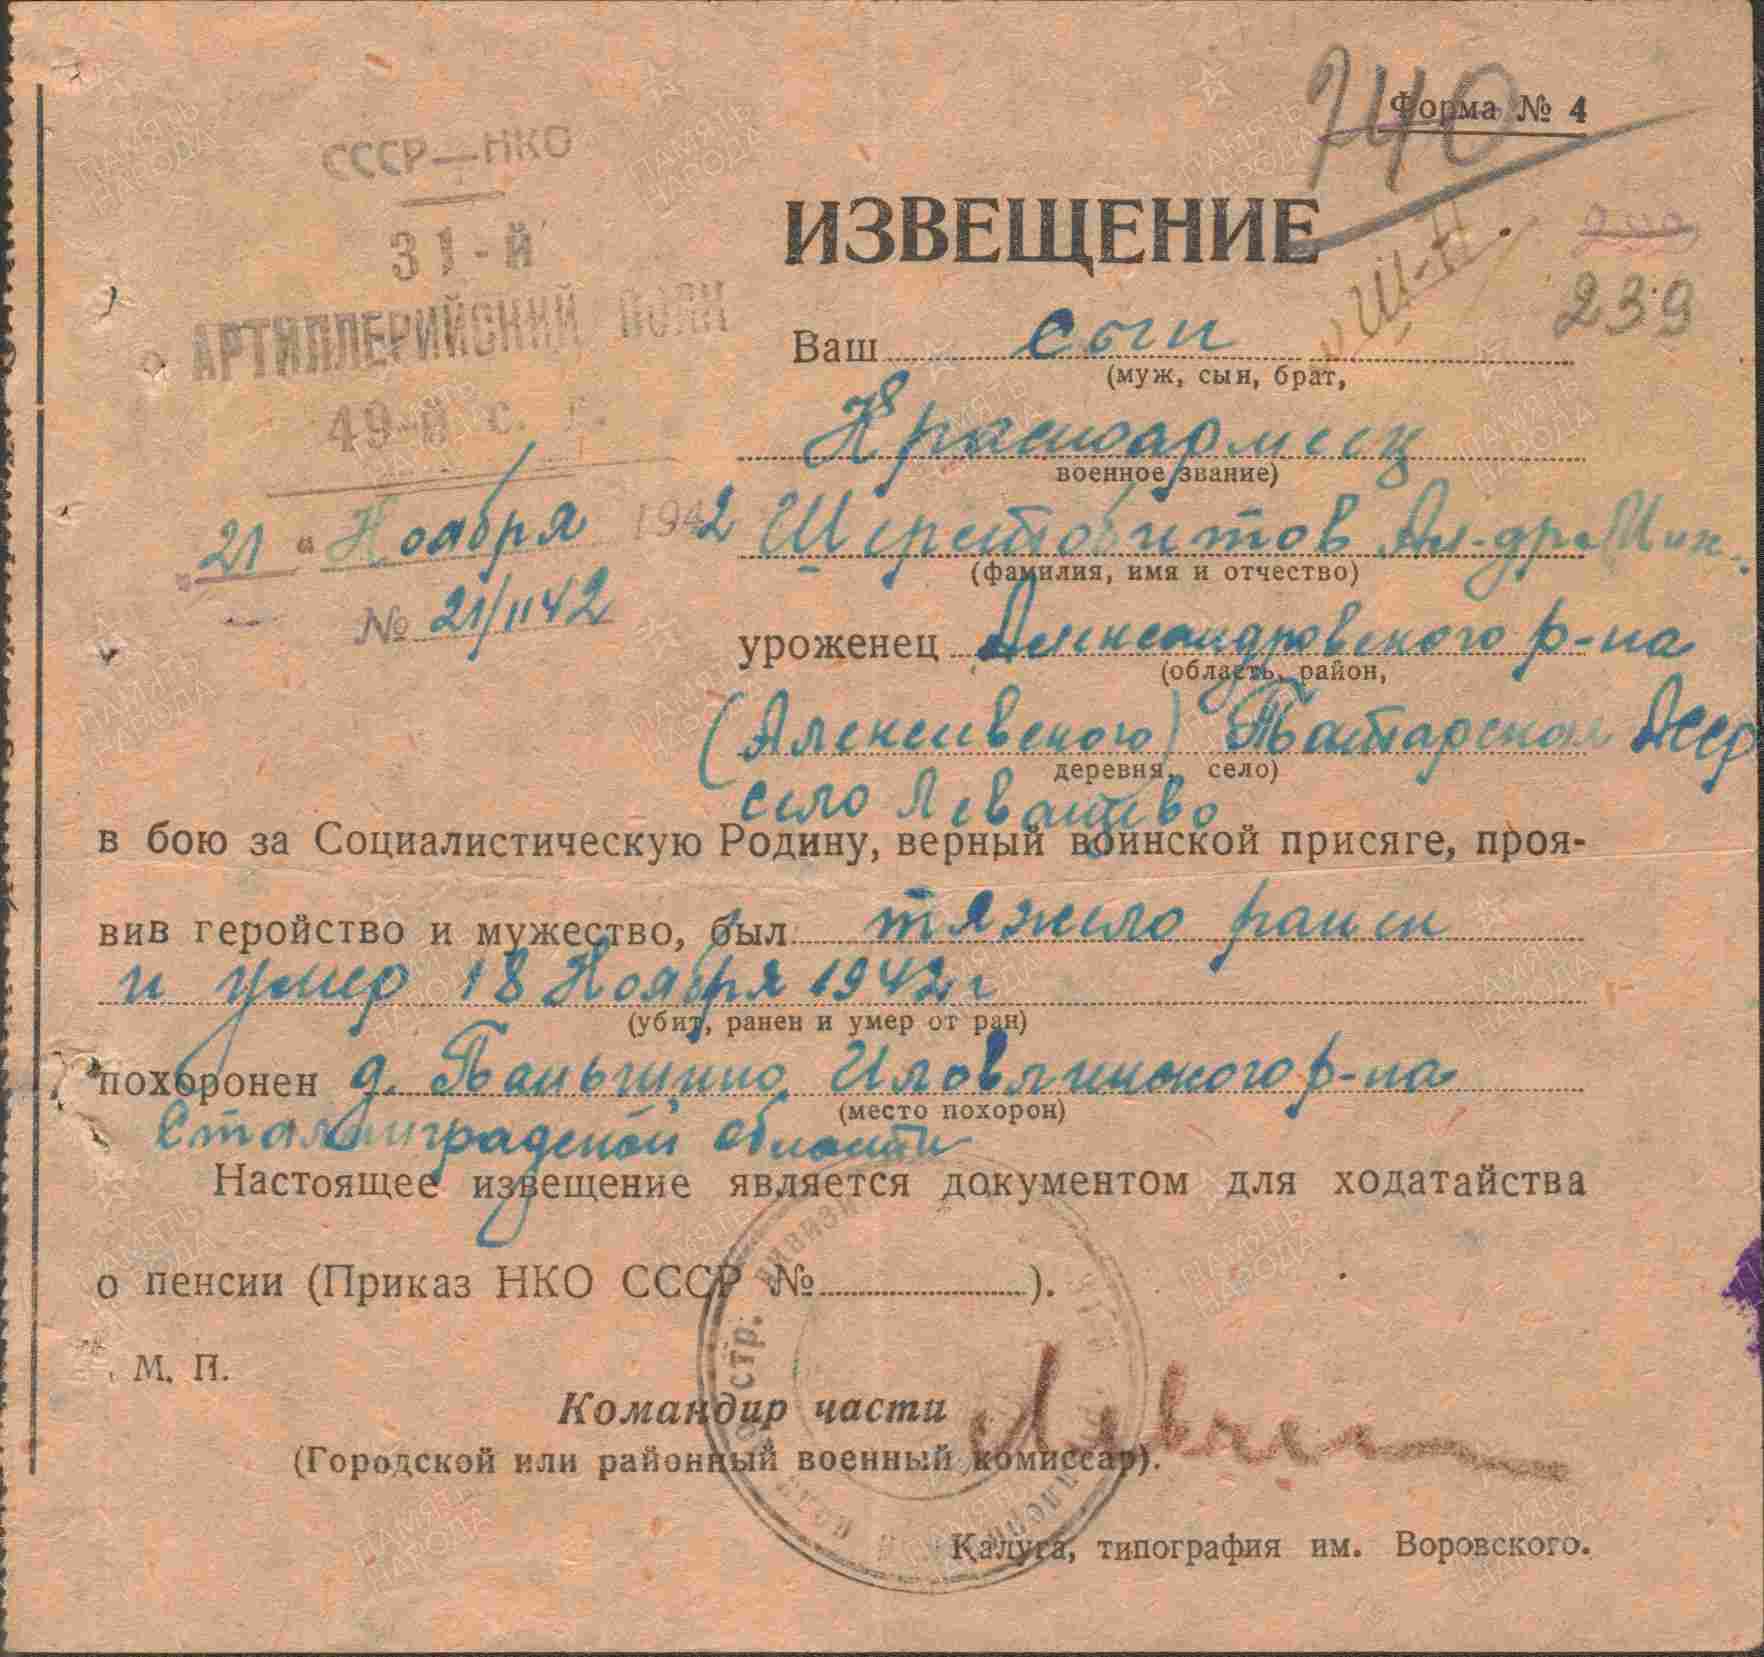 740
Форма № 4
СССР—НКО
31-й
АРТИЛЛЕРИЙСКИЙ ПОЛК
49-й с. д.
21 " Ноября 1942
№ 21/1142
ИЗВЕЩЕНИЕ
239
Ваш сын
(муж, сын, брат,
Красноармеец
военное звание)
Шерстобитов Ал-др Ник.
(фамилия, имя и отчество)
уроженец Александровского р-на
(область, район,
(Алексеевского) Татарская АССР
деревня, село)
село Левашево
в бою за Социалистическую Родину, верный воинской присяге, проя-
вив геройство и мужество, был тяжело ранен
и умер 18 Ноября 1942 г
(убит, ранен и умер от ран)
похоронен д. Паньшино Иловлинского р-на
(место похорон)
Сталинградской области
Настоящее извещение является документом для ходатайства
о пенсии (Приказ НКО СССР № ).
М. П.
Командир части
(Городской или районный военный комиссар).
Калуга, типография им. Воровского.
ПАМЯТЬ НАРОДА